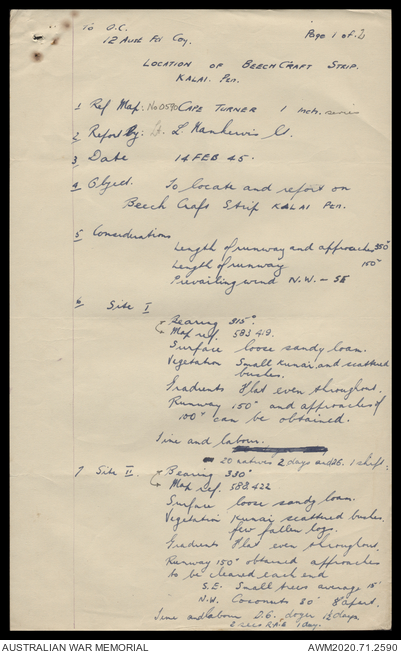 To O.C.
12 Aust Fd Coy.
Page 1 of 2
LOCATION OF BEECH CRAFT STRIP.
KALAI. Pen.
1 Ref Map: No 0590 CAPE TURNER 1 inch series
2 Report By: Lt. L
3 Date 14 FEB 45.
4 Object. To locate and report on
Beech Craft Strip KALAI Pen.
5 Considerations
Length of runway and approaches 350ˣ
Length of runway 150ˣ
Prevailing wind N.W. – SE
6 Site I
Bearing 315°
Map ref. 583419.
Surface loose sandy loam.
Vegetation Small Kunai, and scattered
bushes.
Gradients Flat even throughout.
Runway 150ˣ and approaches of
100ˣ can be obtained.
Time and labour.
20 natives 2 days and 1 shift.
7 Site II
Bearing 330°
Map ref. 588422
Surface loose sandy loam.
Vegetation Kunai scattered bushes,
few fallen logs.
Gradients Flat even throughout.
Runway 150ˣ obtained approaches
to be cleared each end
S.E. Small trees average 15'
N.W. Coconuts 80' apart.
Time and labour D.6. dozer 1½ days
2 secs R.A.E. 1 day.
AUSTRALIAN WAR MEMORIAL
AWM2020.71.2590